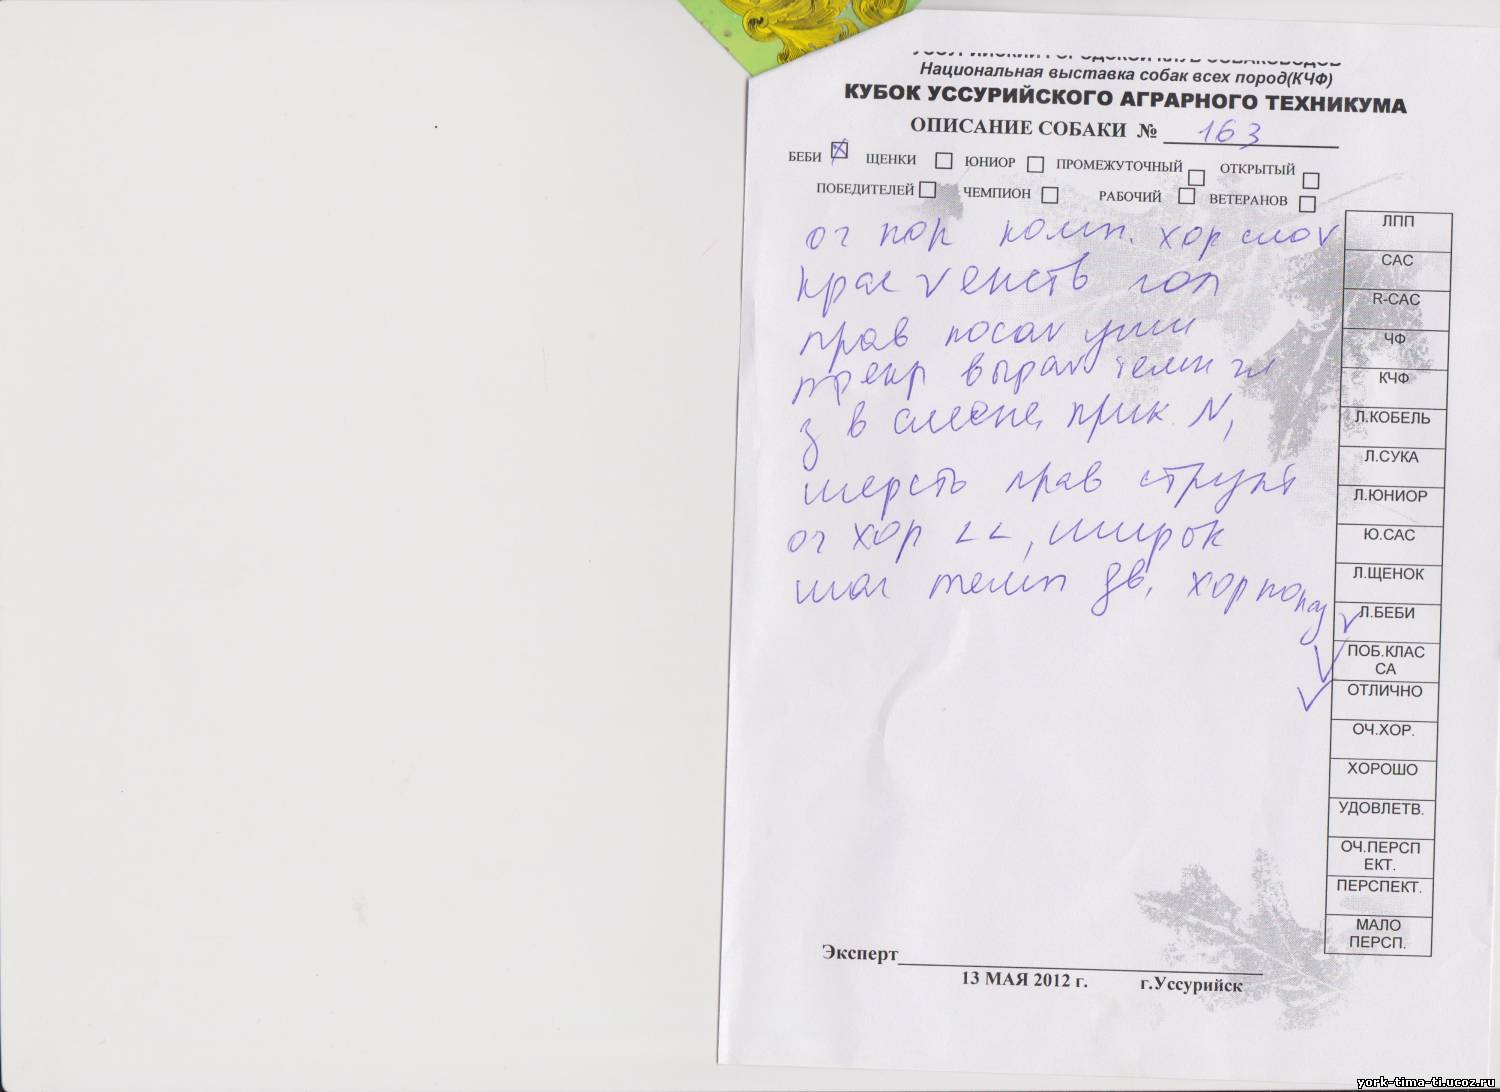 УССУРИЙСКИЙ ГОРОДСКОЙ КЛУБ СОБАКОВОДОВ
Национальная выставка собак всех пород(КЧФ)
КУБОК УССУРИЙСКОГО АГРАРНОГО ТЕХНИКУМА
ОПИСАНИЕ СОБАКИ № 163
БЕБИ ЩЕНКИ ЮНИОР ПРОМЕЖУТОЧНЫЙ ОТКРЫТЫЙ
ПОБЕДИТЕЛЕЙ ЧЕМПИОН РАБОЧИЙ ВЕТЕРАНОВ
оч пор комп. хор
женств гол
прав посаж уши
прекр выраж темн гл
з в прик N,
шерсть прав структ
оч хор LL, широк
шаг темп дв, хор показ
ЛПП
САС
R-САС
ЧФ
КЧФ
Л.КОБЕЛЬ
Л.СУКА
Л.ЮНИОР
Ю.САС
Л.ЩЕНОК
Л.БЕБИ
ПОБ.КЛАС
СА
ОТЛИЧНО
ОЧ.ХОР.
ХОРОШО
УДОВЛЕТВ.
ОЧ.ПЕРСП
ЕКТ.
ПЕРСПЕКТ.
МАЛО
ПЕРСП.
Эксперт
13 МАЯ 2012 г. г.Уссурийск
york-tima-ti.ucoz.ru